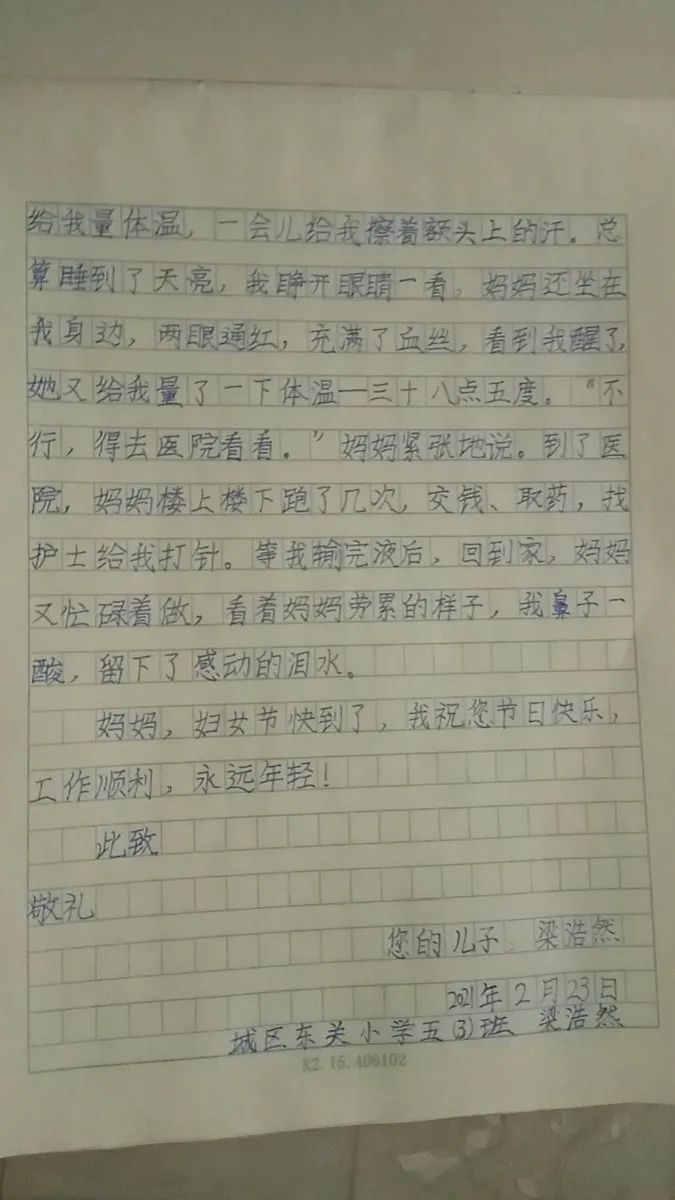 给我量体温，一会儿给我擦着额头上的汗。总
算睡到了天亮，我睁开眼睛一看，妈妈还坐在
我身边，两眼通红，充满了血丝，看到我醒了，
她又给我量了一下体温—三十八点五度。“不
行，得去医院看看。”妈妈紧张地说。到了医
院，妈妈楼上楼下跑了几次，交钱、取药，找
护士给我打针。等我输完液后，回到家，妈妈
又忙碌着做，看着妈妈劳累的样子，我鼻子一
酸，留下了感动的泪水。
妈妈，妇女节快到了，我祝您节日快乐，
工作顺利，永远年轻！
此致
敬礼
您的儿子：梁浩然
2021年2月23日
城区东关小学五(3)班 梁浩然
K2.15.406102